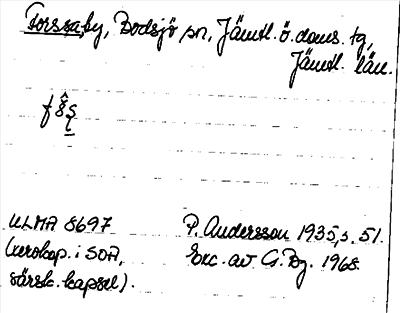 Forssaby, Bodsjö sn, Jämtl. ö. doms. tg,
Jämtl. län.
ULMA 8697
(xerokop. i SOA,
särsk. kapsel).
P. Andersson 1935, s. 51.
Exc. av G. Bg. 1968.